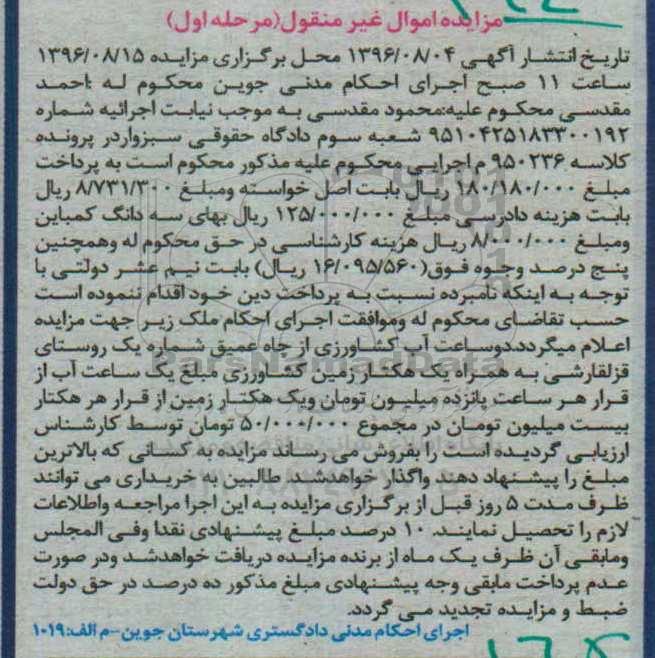 مزایده اموال غیر منقول(مرحله اول)
تاریخ انتشار آگهی ۱۳۹۶/۰۸/۰۴ محل برگزاری مزایده ۱۳۹۶/۰۸/۱۵
ساعت ۱۱ صبح اجرای احکام مدنی جوین محکوم له :احمد
مقدسی محکوم علیه:محمود مقدسی به موجب نیابت اجرائیه شماره
۹۵۱۰۴۲۵۱۸۳۳۰۰۱۹۲ شعبه سوم دادگاه حقوقی سبزواردر پرونده
کلاسه ۹۵۰۲۳۶ م اجرایی محکوم علیه مذکور محکوم است به پرداخت
مبلغ ۱۸۰/۱۸۰/۰۰۰ ریال بابت اصل خواسته ومبلغ ۸/۷۳۱/۳۰۰ ریال
بابت هزینه دادرسی مبلغ ۱۲۵/۰۰۰/۰۰۰ ریال بهای سه دانگ کمباین
ومبلغ ۸/۰۰۰/۰۰۰ ریال هزینه کارشناسی در حق محکوم له وهمچنین
پنج درصد وجوه فوق(۱۶/۰۹۵/۵۶۰ ریال) بابت نیم عشر دولتی با
توجه به اینکه نامبرده نسبت به پرداخت دین خود اقدام ننموده است
حسب تقاضای محکوم له وموافقت اجرای احکام ملک زیر جهت مزایده
اعلام میگردد.دوساعت آب کشاورزی از چاه عمیق شماره یک روستای
قزلقارشی به همراه یک هکتار زمین کشاورزی مبلغ یک ساعت آب از
قرار هر ساعت پانزده میلیون تومان ویک هکتار زمین از قرار هر هکتار
بیست میلیون تومان در مجموع ۵۰/۰۰۰/۰۰۰ تومان توسط کارشناس
ارزیابی گردیده است را بفروش می رساند مزایده به کسانی که بالاترین
مبلغ را پیشنهاد دهند واگذار خواهدشد. طالبین به خریداری می توانند
ظرف مدت ۵ روز قبل از برگزاری مزایده به این اجرا مراجعه واطلاعات
لازم را تحصیل نمایند. ۱۰ درصد مبلغ پیشنهادی نقدا وفی المجلس
ومابقی آن ظرف یک ماه از برنده مزایده دریافت خواهدشد ودر صورت
عدم پرداخت مابقی وجه پیشنهادی مبلغ مذکور ده درصد در حق دولت
ضبط و مزایده تجدید می گردد.
اجرای احکام مدنی دادگستری شهرستان جوین-م الف:۱۰۱۹
ParsNamadData